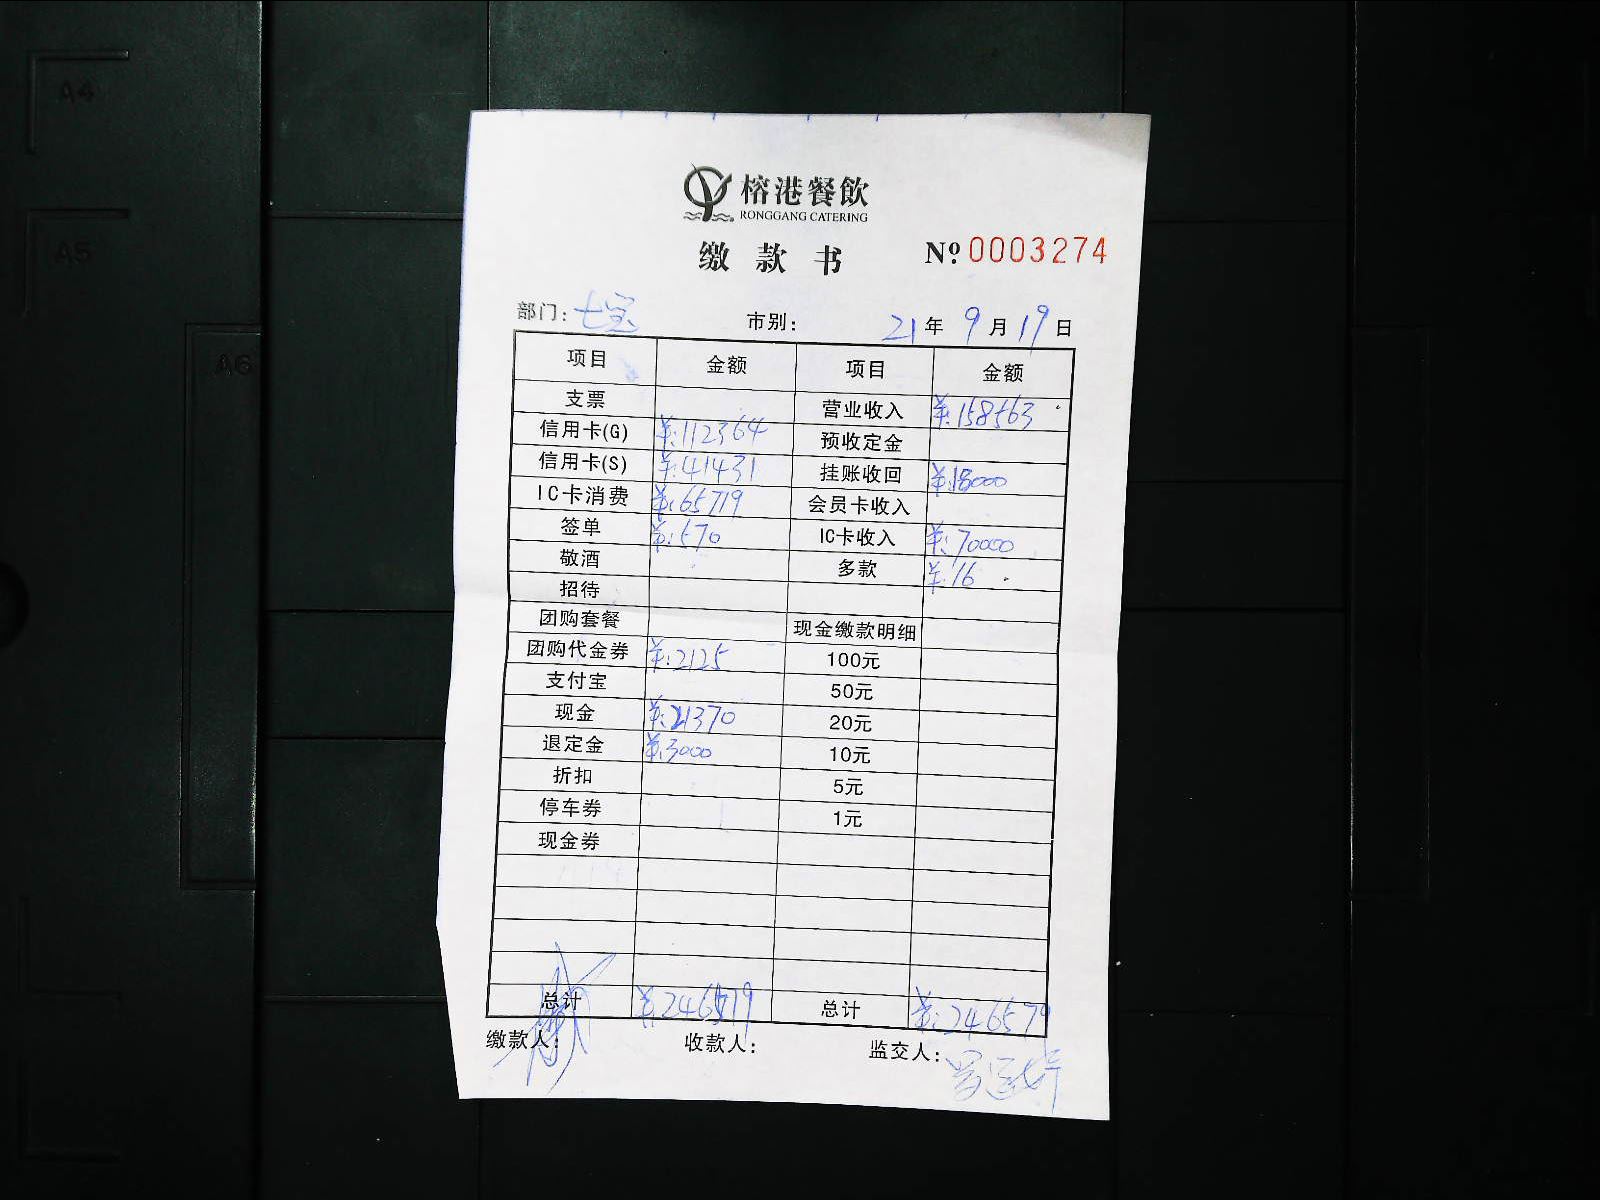 A4
A5
A6
榕港餐飲
RONGGANG CATERING
缴款书 Nº 0003274
部门: 七宝 市别: 21年 9月 19日
项目 金额 项目 金额
支票 营业收入 ¥:158563
信用卡(G) ¥:112364 预收定金
信用卡(S) ¥:41431 挂账收回 ¥:18000
IC卡消费 ¥:65719 会员卡收入
签单 ¥:570 IC卡收入 ¥:70000
敬酒 多款 ¥:16
招待
团购套餐 现金缴款明细
团购代金券 ¥:2125 100元
支付宝 50元
现金 ¥:21370 20元
退定金 ¥:3000 10元
折扣 5元
停车券 1元
现金券
总计 ¥:246579 总计 ¥:246579
缴款人: 收款人: 监交人: